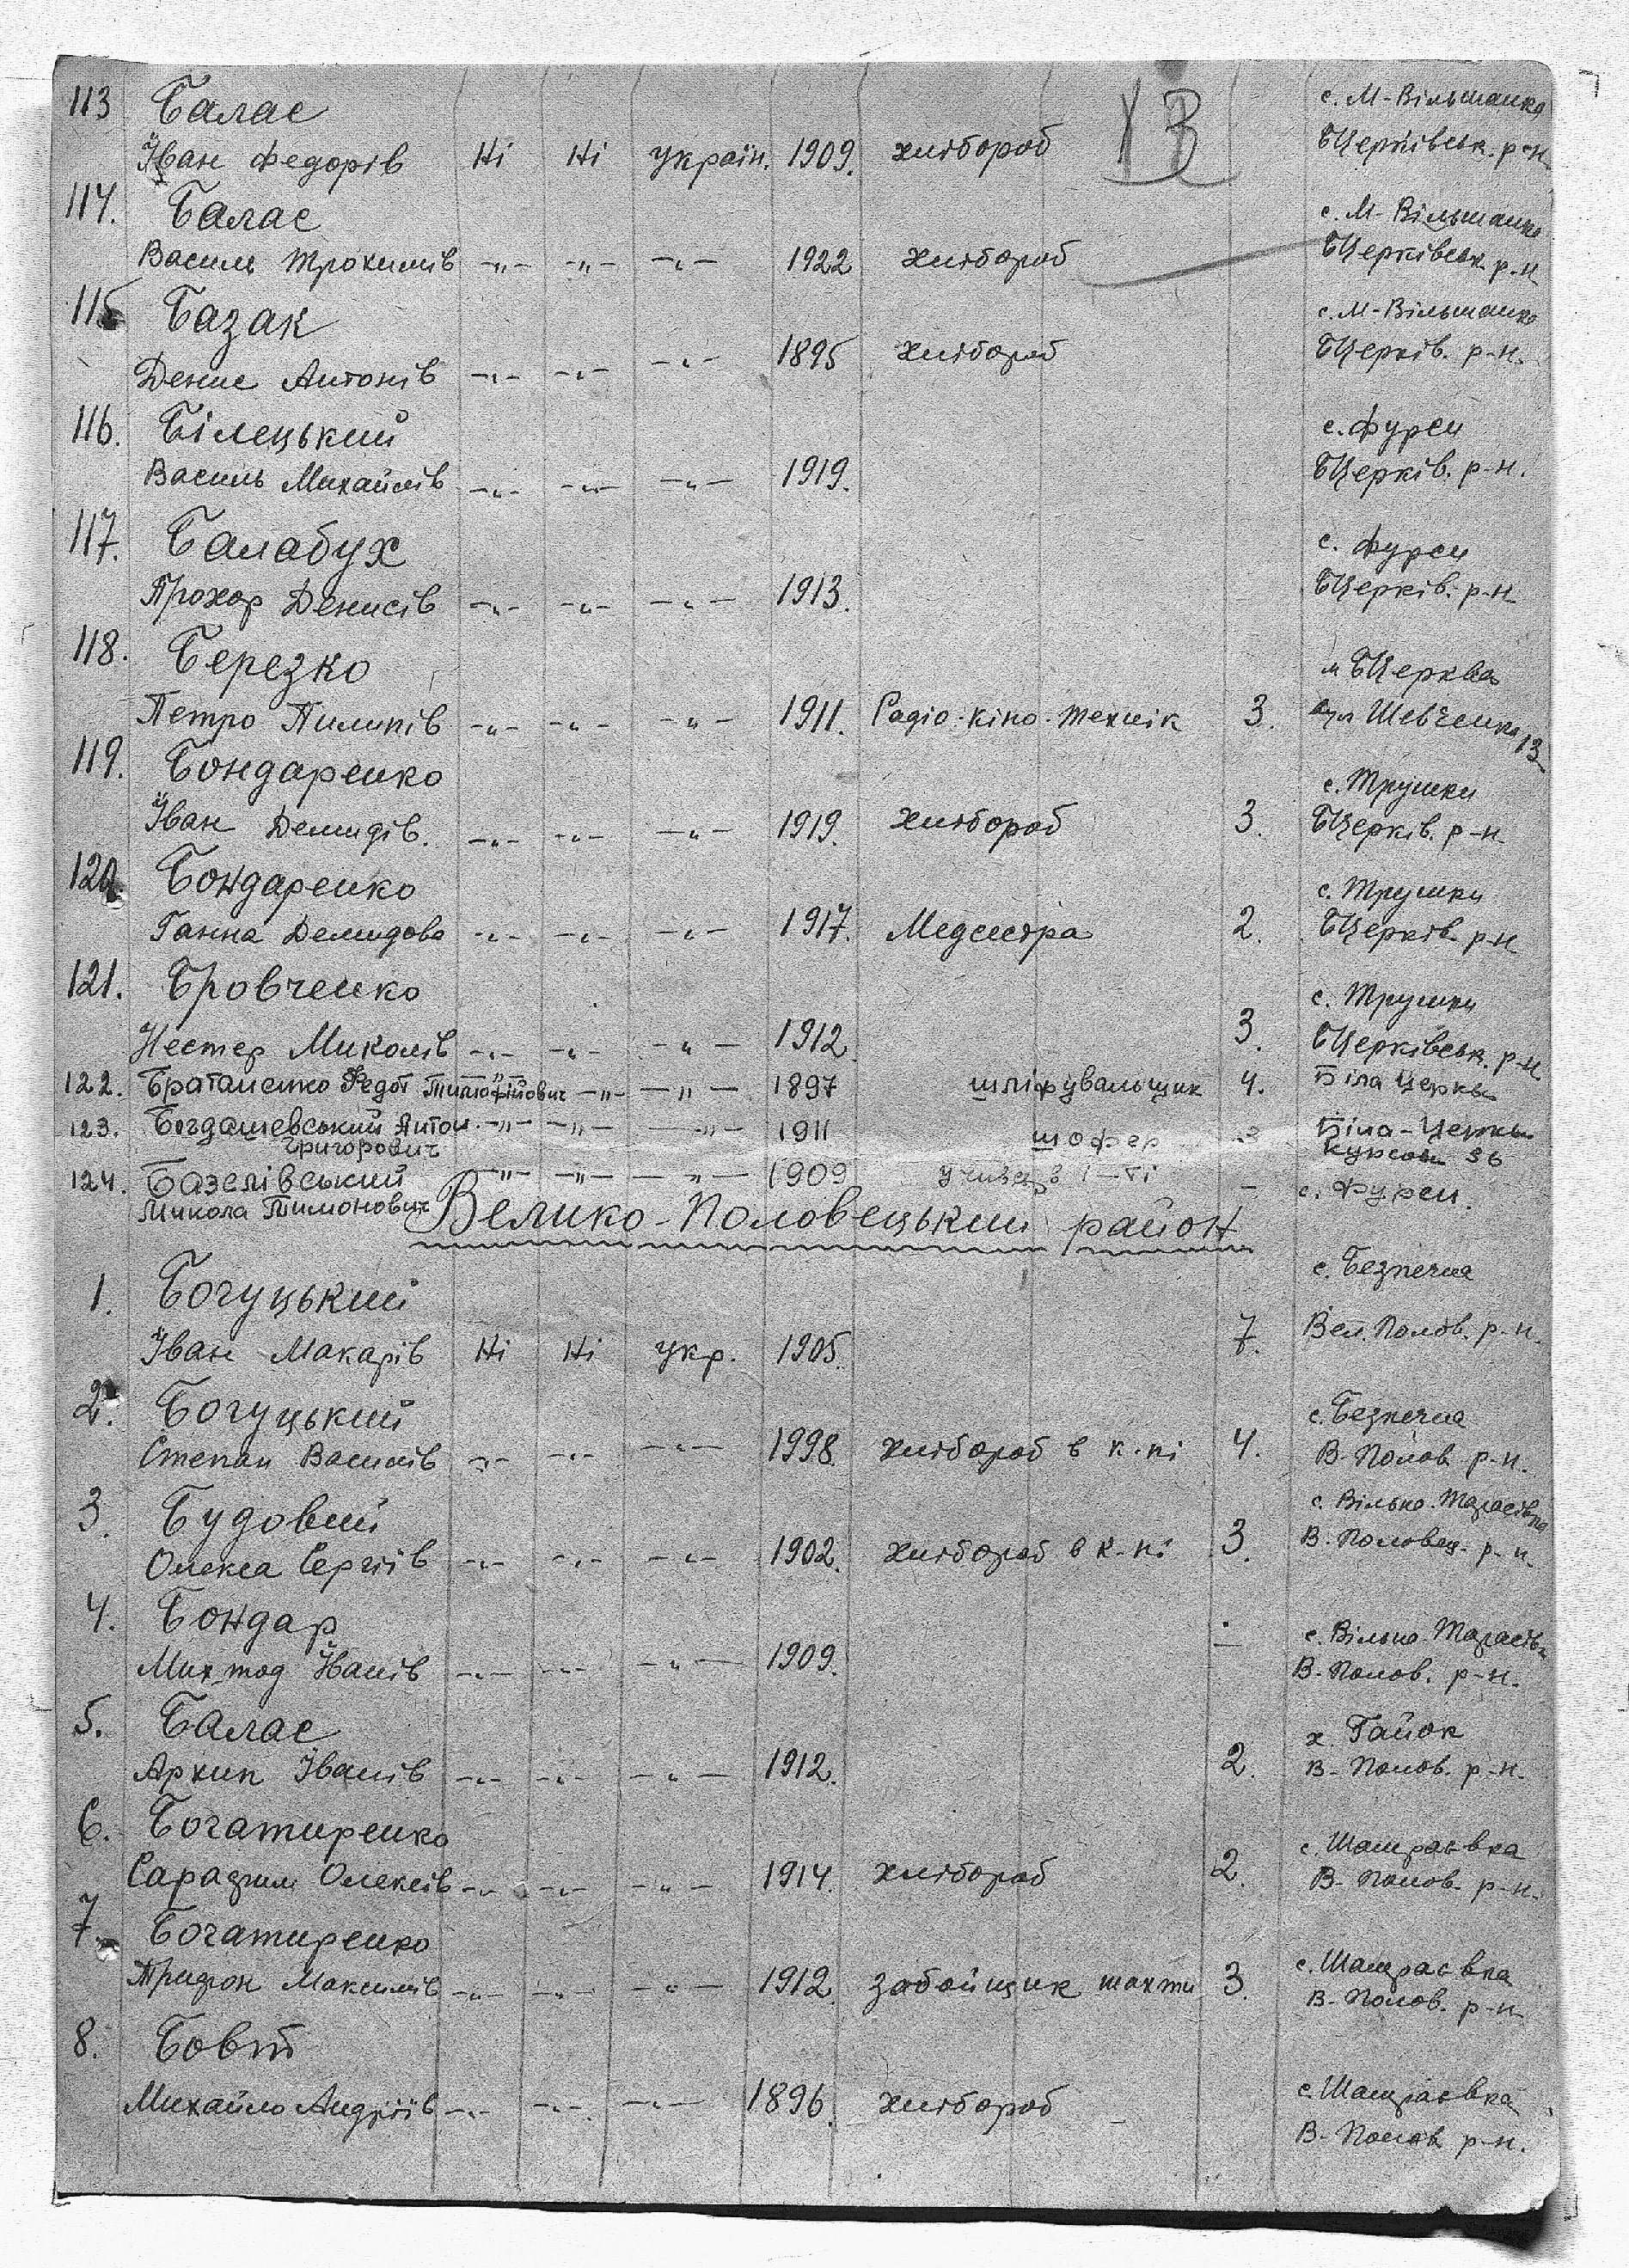 113 Балас с. М-Вільшанка
Іван Федорів Ні Ні україн. 1909. хлібороб БЦерківськ. р-н
114. Балас с. М-Вільшанка
Василь Трохимів -„- -„- -„- 1922 хлібороб БЦерківськ. р-н
115 Базак с. М-Вільшанка
Денис Антонів -„- -„- -„- 1895 хлібороб БЦерків. р-н.
116. Білецький с. Фурси
Василь Михайлів -„- -„- -„- 1919. БЦерків. р-н.
117. Балабух с. Фурси
Прохор Денисів -„- -„- -„- 1913. БЦерків. р-н
118. Березко м БЦерква
Петро Пилипів -„- -„- -„- 1911. Радіо-кіно-технік 3. вул Шевченка 13
119. Бондаренко с. Трушки
Іван Демидів. -„- -„- -„- 1919. хлібороб 3. БЦерків. р-н
120. Бондаренко с. Трушки
Ганна Демидова -„- -„- -„- 1917. Медсестра 2. БЦерків. р-н
121. Бровченко с. Трушки
Нестер Миколів -„- -„- -„- 1912. 3. БЦерківськ. р-н
122. Братаненко Федот Тимофійович -„- -„- -„- 1897 шліфувальщик 4. Біла Церква
123. Богдашевський Антон -„- -„- -„- 1911 шофер 3 Біла-Церква
Григорович 36
124. Базелівський -„- -„- -„- 1909 - с. Фурси.
Микола Тимонович
Велико-Половецький район
1. Богуцький с. Безпечна
Іван Макарів Ні Ні укр. 1905. 7. Вел. Полов. р-н.
2. Богуцький с. Безпечна
Степан Василів -„- -„- -„- 1998. хлібороб в к-пі 4. В-Полов. р-н.
3. Будовий с. Вільно-Тарасівка
Олекса Сергіїв -„- -„- -„- 1902. хлібороб в к-пі 3. В. Половец. р-н.
4. Бондар с. Вільно-Тарасівка
Михтод Іванів -„- -„- -„- 1909. - В-Полов. р-н.
5. Балас х. Гайок
Архип Іванів -„- -„- -„- 1912. 2. В-Полов. р-н.
6. Богатиренко с. Шамраєвка
Олексів -„- -„- -„- 1914. хлібороб 2. В-Полов. р-н.
7. Богатиренко с. Шамраєвка
Трифон Максимів -„- -„- -„- 1912. забойщик шахти 3. В-Полов. р-н
8. Бовт с. Шамраєвка
Михайло Андріїв -„- -„- -„- 1896. хлібороб В-Полов р-н.